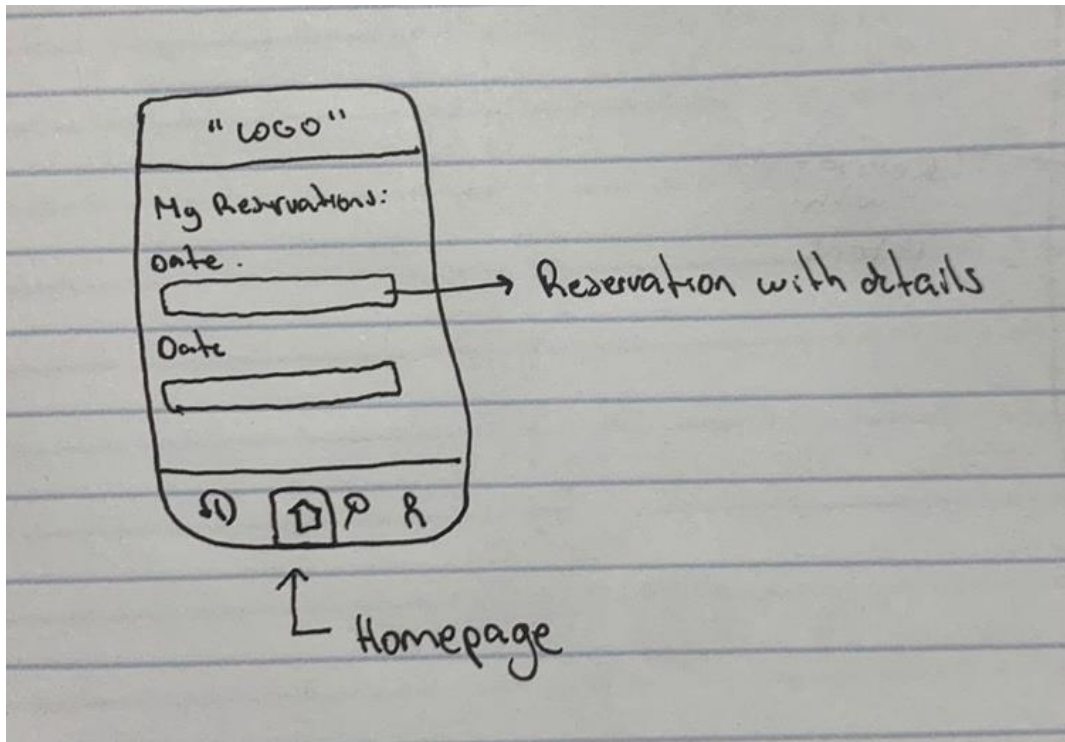 "LOGO"
My Reservations:
Date.
Reservation with details
Date
Homepage